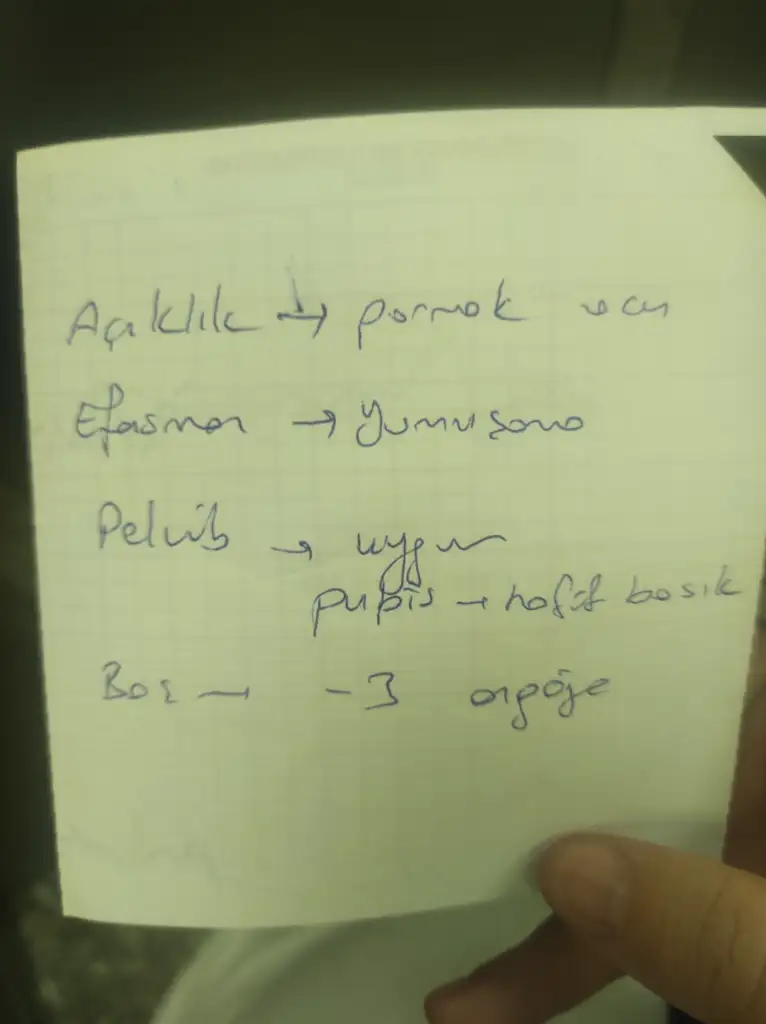 Açıklık → parmak ucu
Efasman → yumuşama
Pelvis → uygun
pupis → hafif basık
Baş → -3 angaje